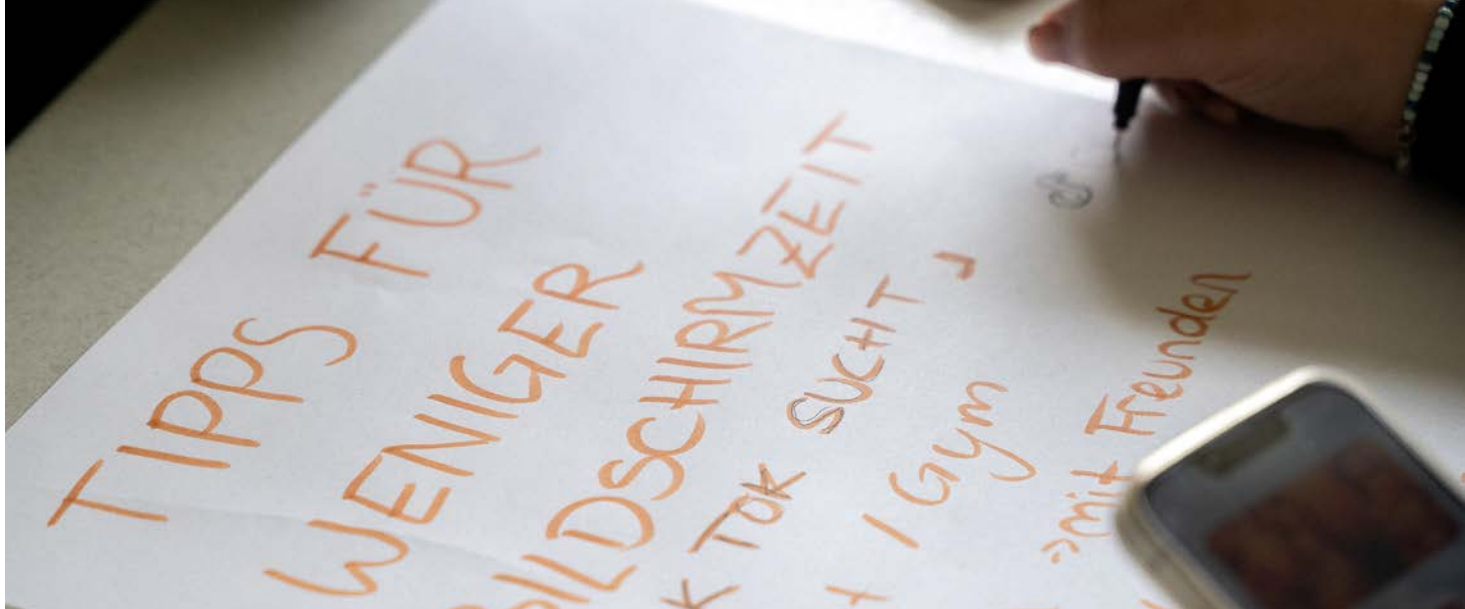 TIPPS FÜR
WENIGER
BILDSCHIRMZEIT
K TOK SUCHT
/ Gym
mit Freunden